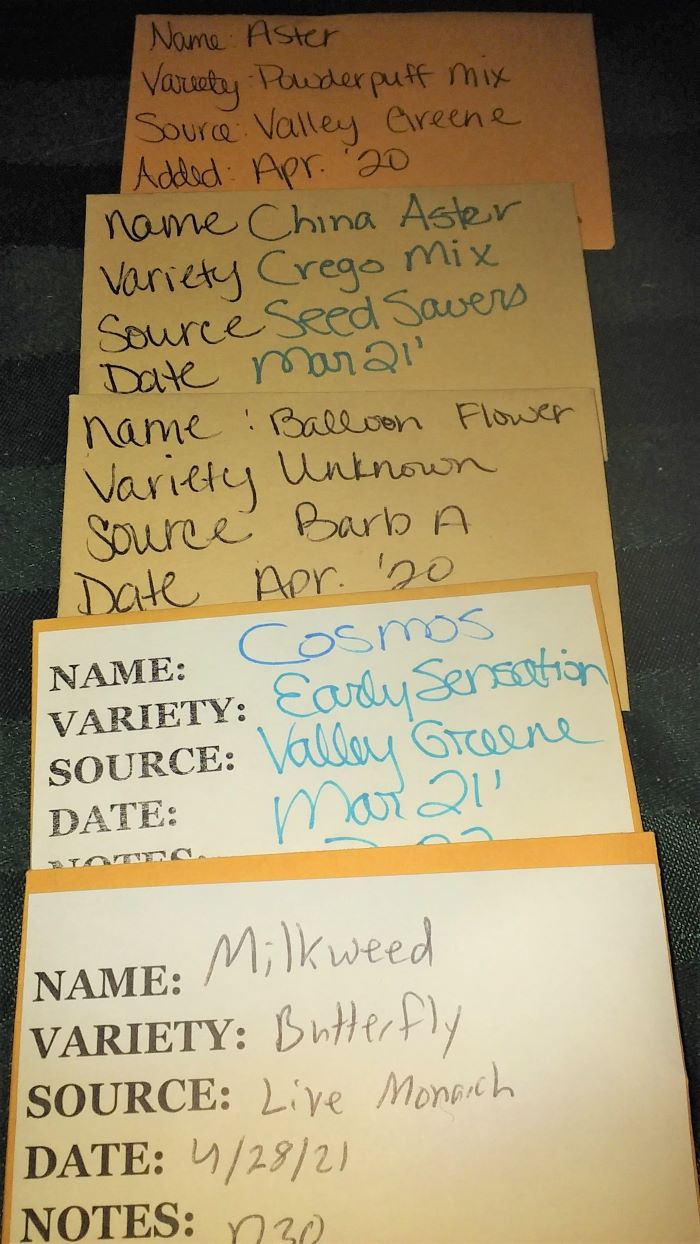 Name: Aster
Variety: Powderpuff Mix
Source: Valley Greene
Added: Apr. '20
Name China Aster
Variety Crego Mix
Source Seed Savers
Date Mar 21'
Name : Balloon Flower
Variety Unknown
Source Barb A
Date Apr. '20
NAME: Cosmos
VARIETY: Early Sensation
SOURCE: Valley Greene
DATE: Mar 21'
NOTES:
NAME: Milkweed
VARIETY: Butterfly
SOURCE: Live Monarch
DATE: 4/28/21
NOTES: n30